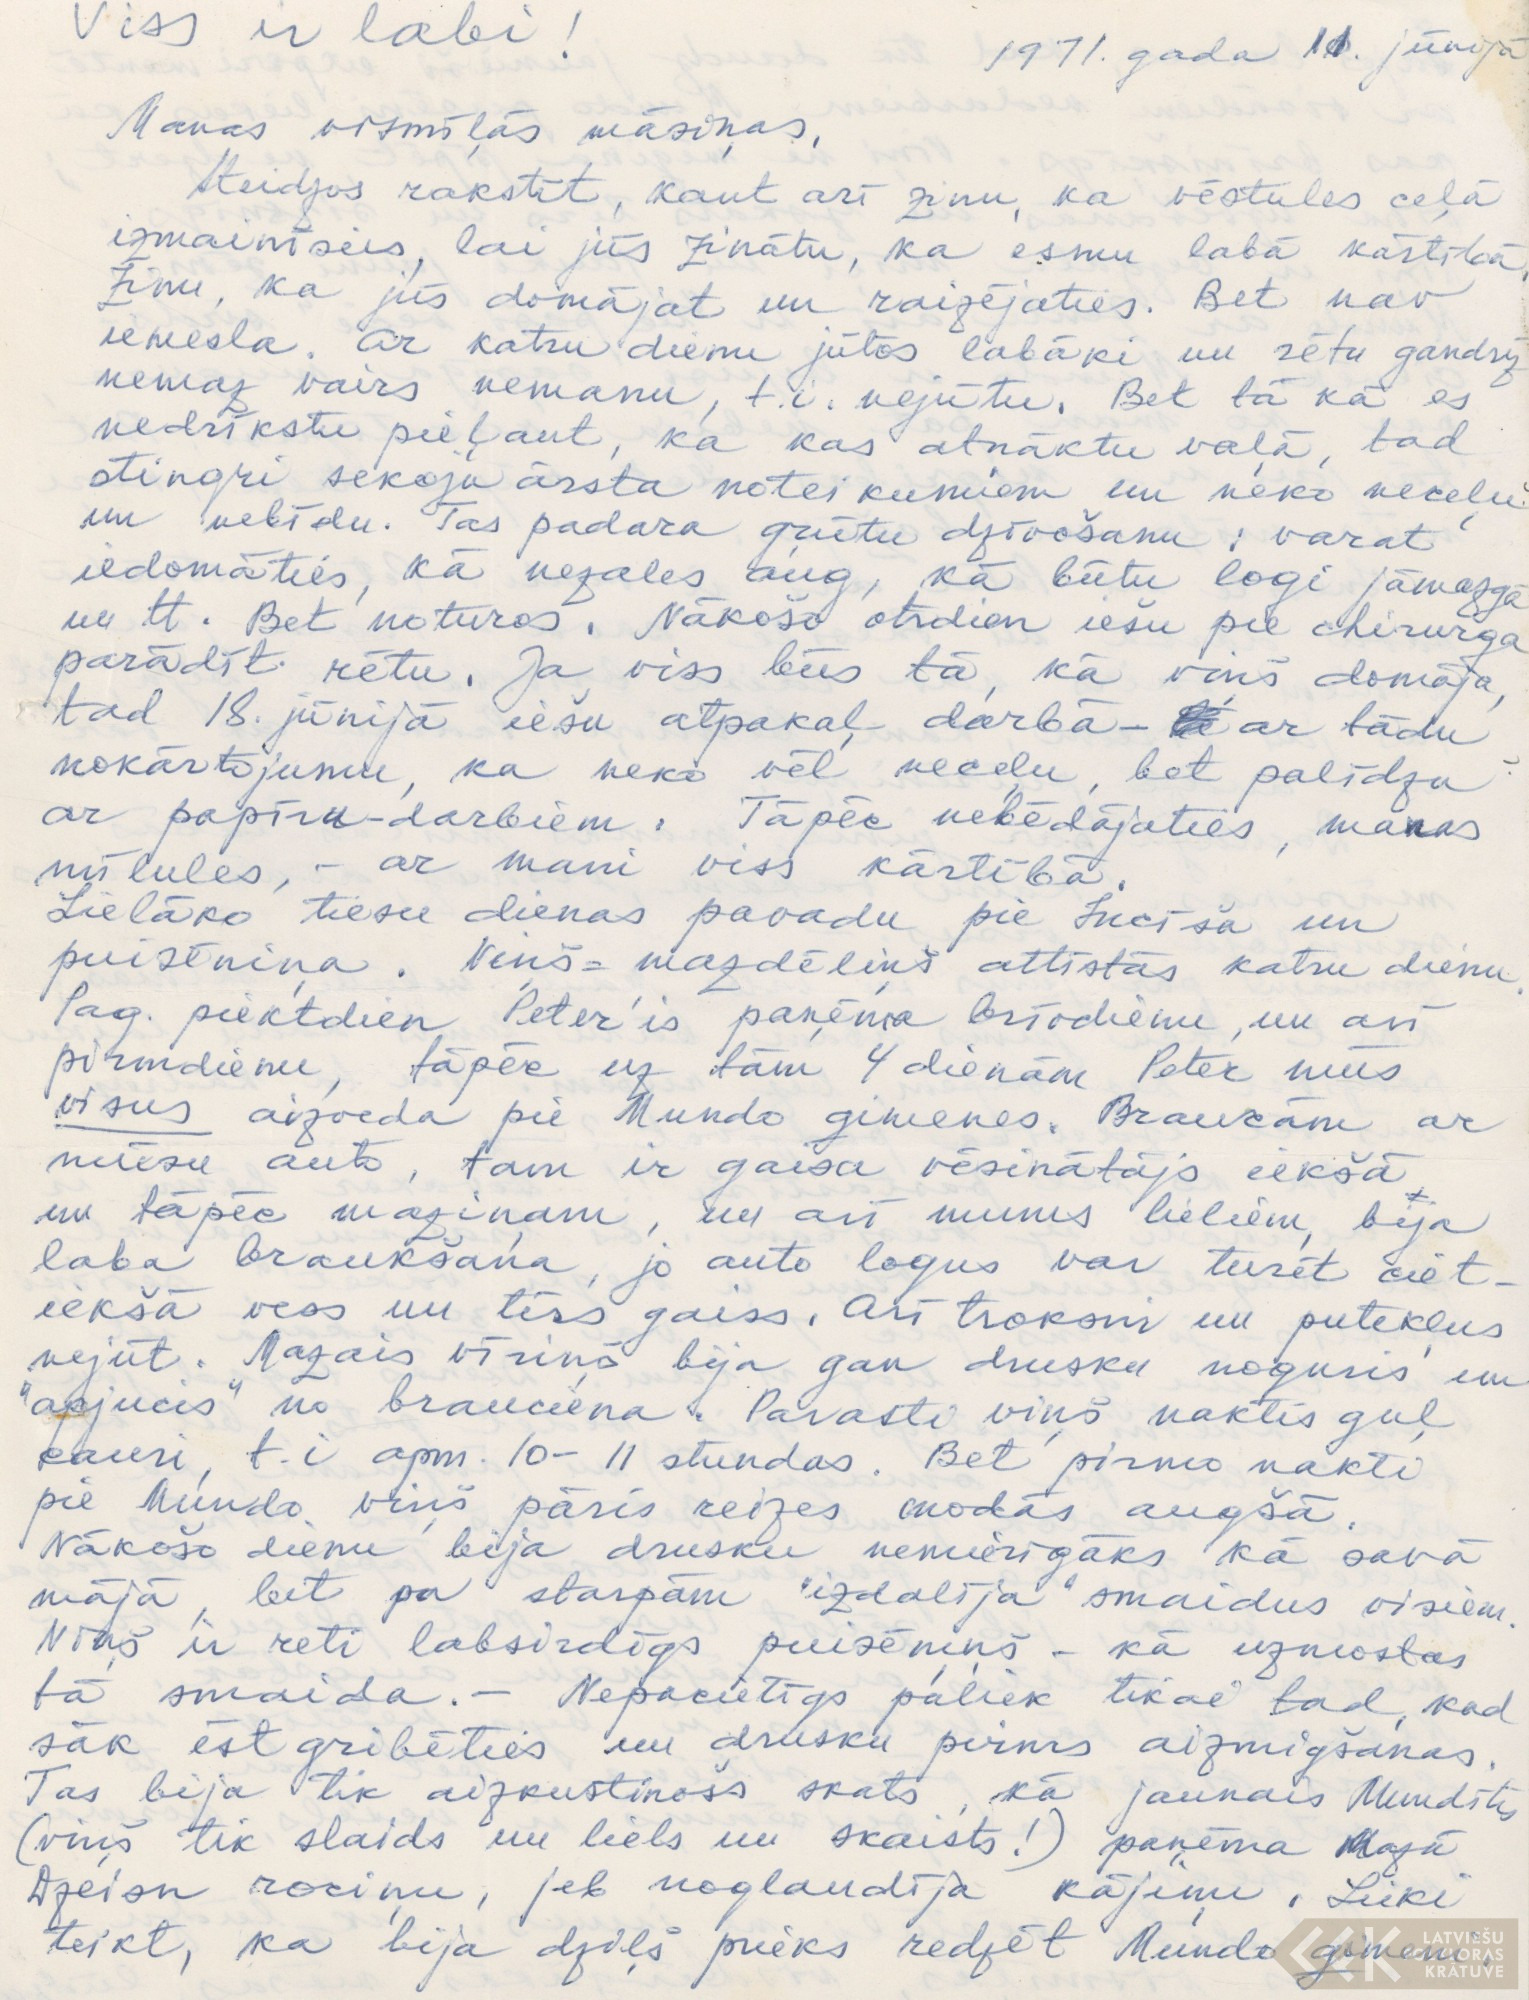 Viss ir labi!
1971. gada 11. jūnijā
Manas vismīļās māsiņas,
Steidzos rakstīt, kaut arī zinu, ka vēstules ceļā
izmainīsies, lai jūs zinātu, ka esmu labā kārtībā.
Zinu, ka jūs domājat un raizējaties. Bet nav
iemesla. Ar katru dienu jūtos labāki un rētu gandrīz
nemaz vairs nemanu, t.i. nejūtu. Bet tā kā es
nedrīkstu pieļaut, ka kas atnāktu vaļā, tad
stingri sekoju ārsta noteikumiem un neko neceļu
un nebīdu. Tas padara grūtu dzīvošanu: varat
iedomāties, kā nezāles aug, kā būtu logi jāmazgā
un tt. Bet noturos. Nākošo otrdien iešu pie chirurga
parādīt rētu. Ja viss būs tā, kā viņš domāja,
tad 18. jūnijā iešu atpakaļ darbā - ar tādu
nokārtojumu, ka neko vēl neceļu, bet palīdzu
ar papīru-darbiem. Tāpēc nebēdājaties, manas
mīlules, - ar mani viss kārtībā.
Lielāko tiesu dienas pavadu pie Lucīša un
puisēniņa. Viņš - mazdēliņš attīstās katru dienu.
Pag. piektdien Peter'is paņēma brīvdienu, un arī
pirmdienu, tāpēc uz tām 4 dienām Peter mūs
visus aizveda pie Mundo ģimenes. Braucām ar
mūsu auto, tam ir gaisa vēsinātājs iekšā
un tāpēc maziņam, un arī mums lieliem, bija
laba braukšana, jo auto logus var turēt ciet -
iekšā vēss un tīrs gaiss. Arī troksni un putekļus
nejūt. Mazais vīriņš bija gan drusku noguris un
"apjucis" no brauciena. Parasti viņš naktīs guļ
cauri, t.i apm. 10-11 stundas. Bet pirmo nakti
pie Mundo viņš pāris reizes modās augšā.
Nākošo dienu bija drusku nemierīgāks kā savā
mājā, bet pa starpām "izdalīja" smaidus visiem.
Viņš ir reti labsirdīgs puisēniņš - kā uzmostas
tā smaida. - Nepacietīgs paliek tikai tad, kad
sāk ēst gribēties un drusku pirms aizmigšanas.
Tas bija tik aizkustinošs skats, kā jaunais Mundītis
(viņš tik slaids un liels un skaists!) paņēma Mazā
Džeisn rociņu, jeb noglaudīja kājiņu. Lieki
teikt, ka bija dziļš prieks redzēt Mundo ģimeni.
LATVIEŠU
FOLKLORAS
KRĀTUVE